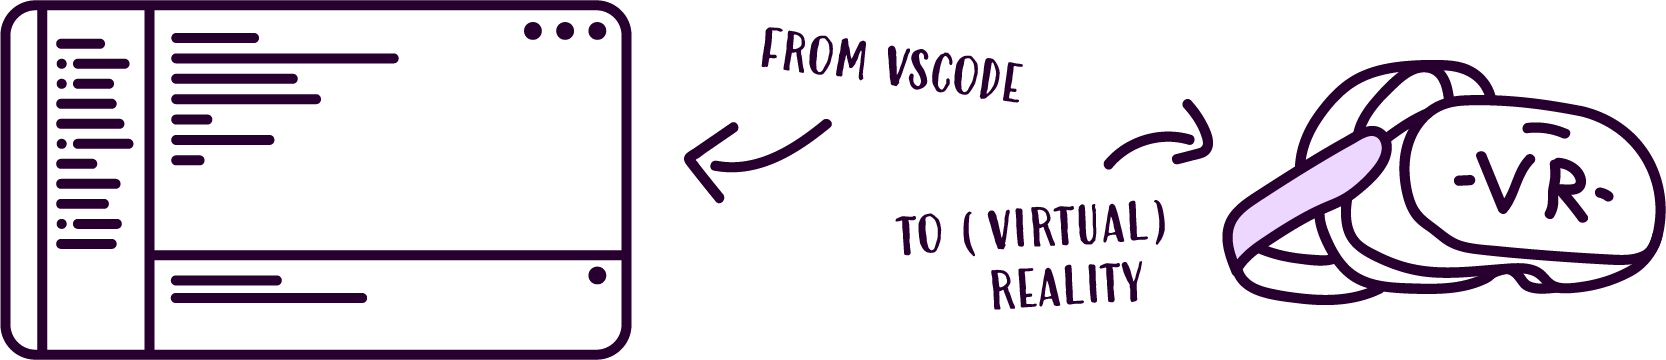 FROM VSCODE
TO (VIRTUAL)
REALITY
-VR-